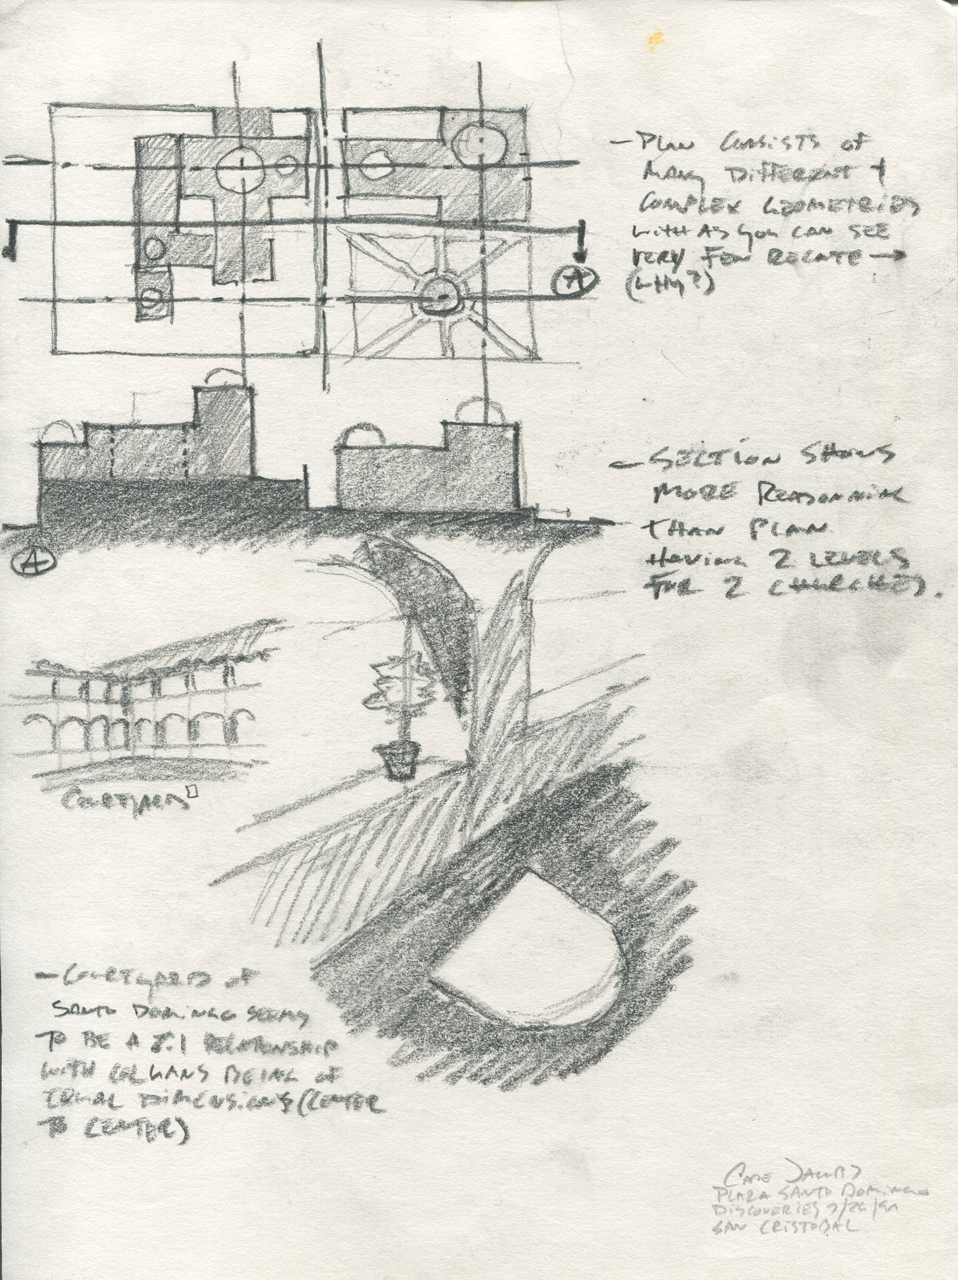 - PLAN CONSISTS OF
MANY DIFFERENT +
COMPLEX GEOMETRIES
WITH AS YOU CAN SEE
VERY FEW RELATE →
(WHY?)
A
- SECTION SHOWS
MORE REASONING
THAN PLAN
HAVING 2 LEVELS
FOR 2 CHURCHES.
A
COURTYARDS
- COURTYARDS OF
SANTO DOMINGO SEEMS
TO BE A :1 RELATIONSHIP
WITH COLUMNS BEING OF
EQUAL DIMENSIONS (CENTER
TO CENTER)
JACOBS
PLAZA SANTO DOMINGO
DISCOVERIES
SAN CRISTOBAL